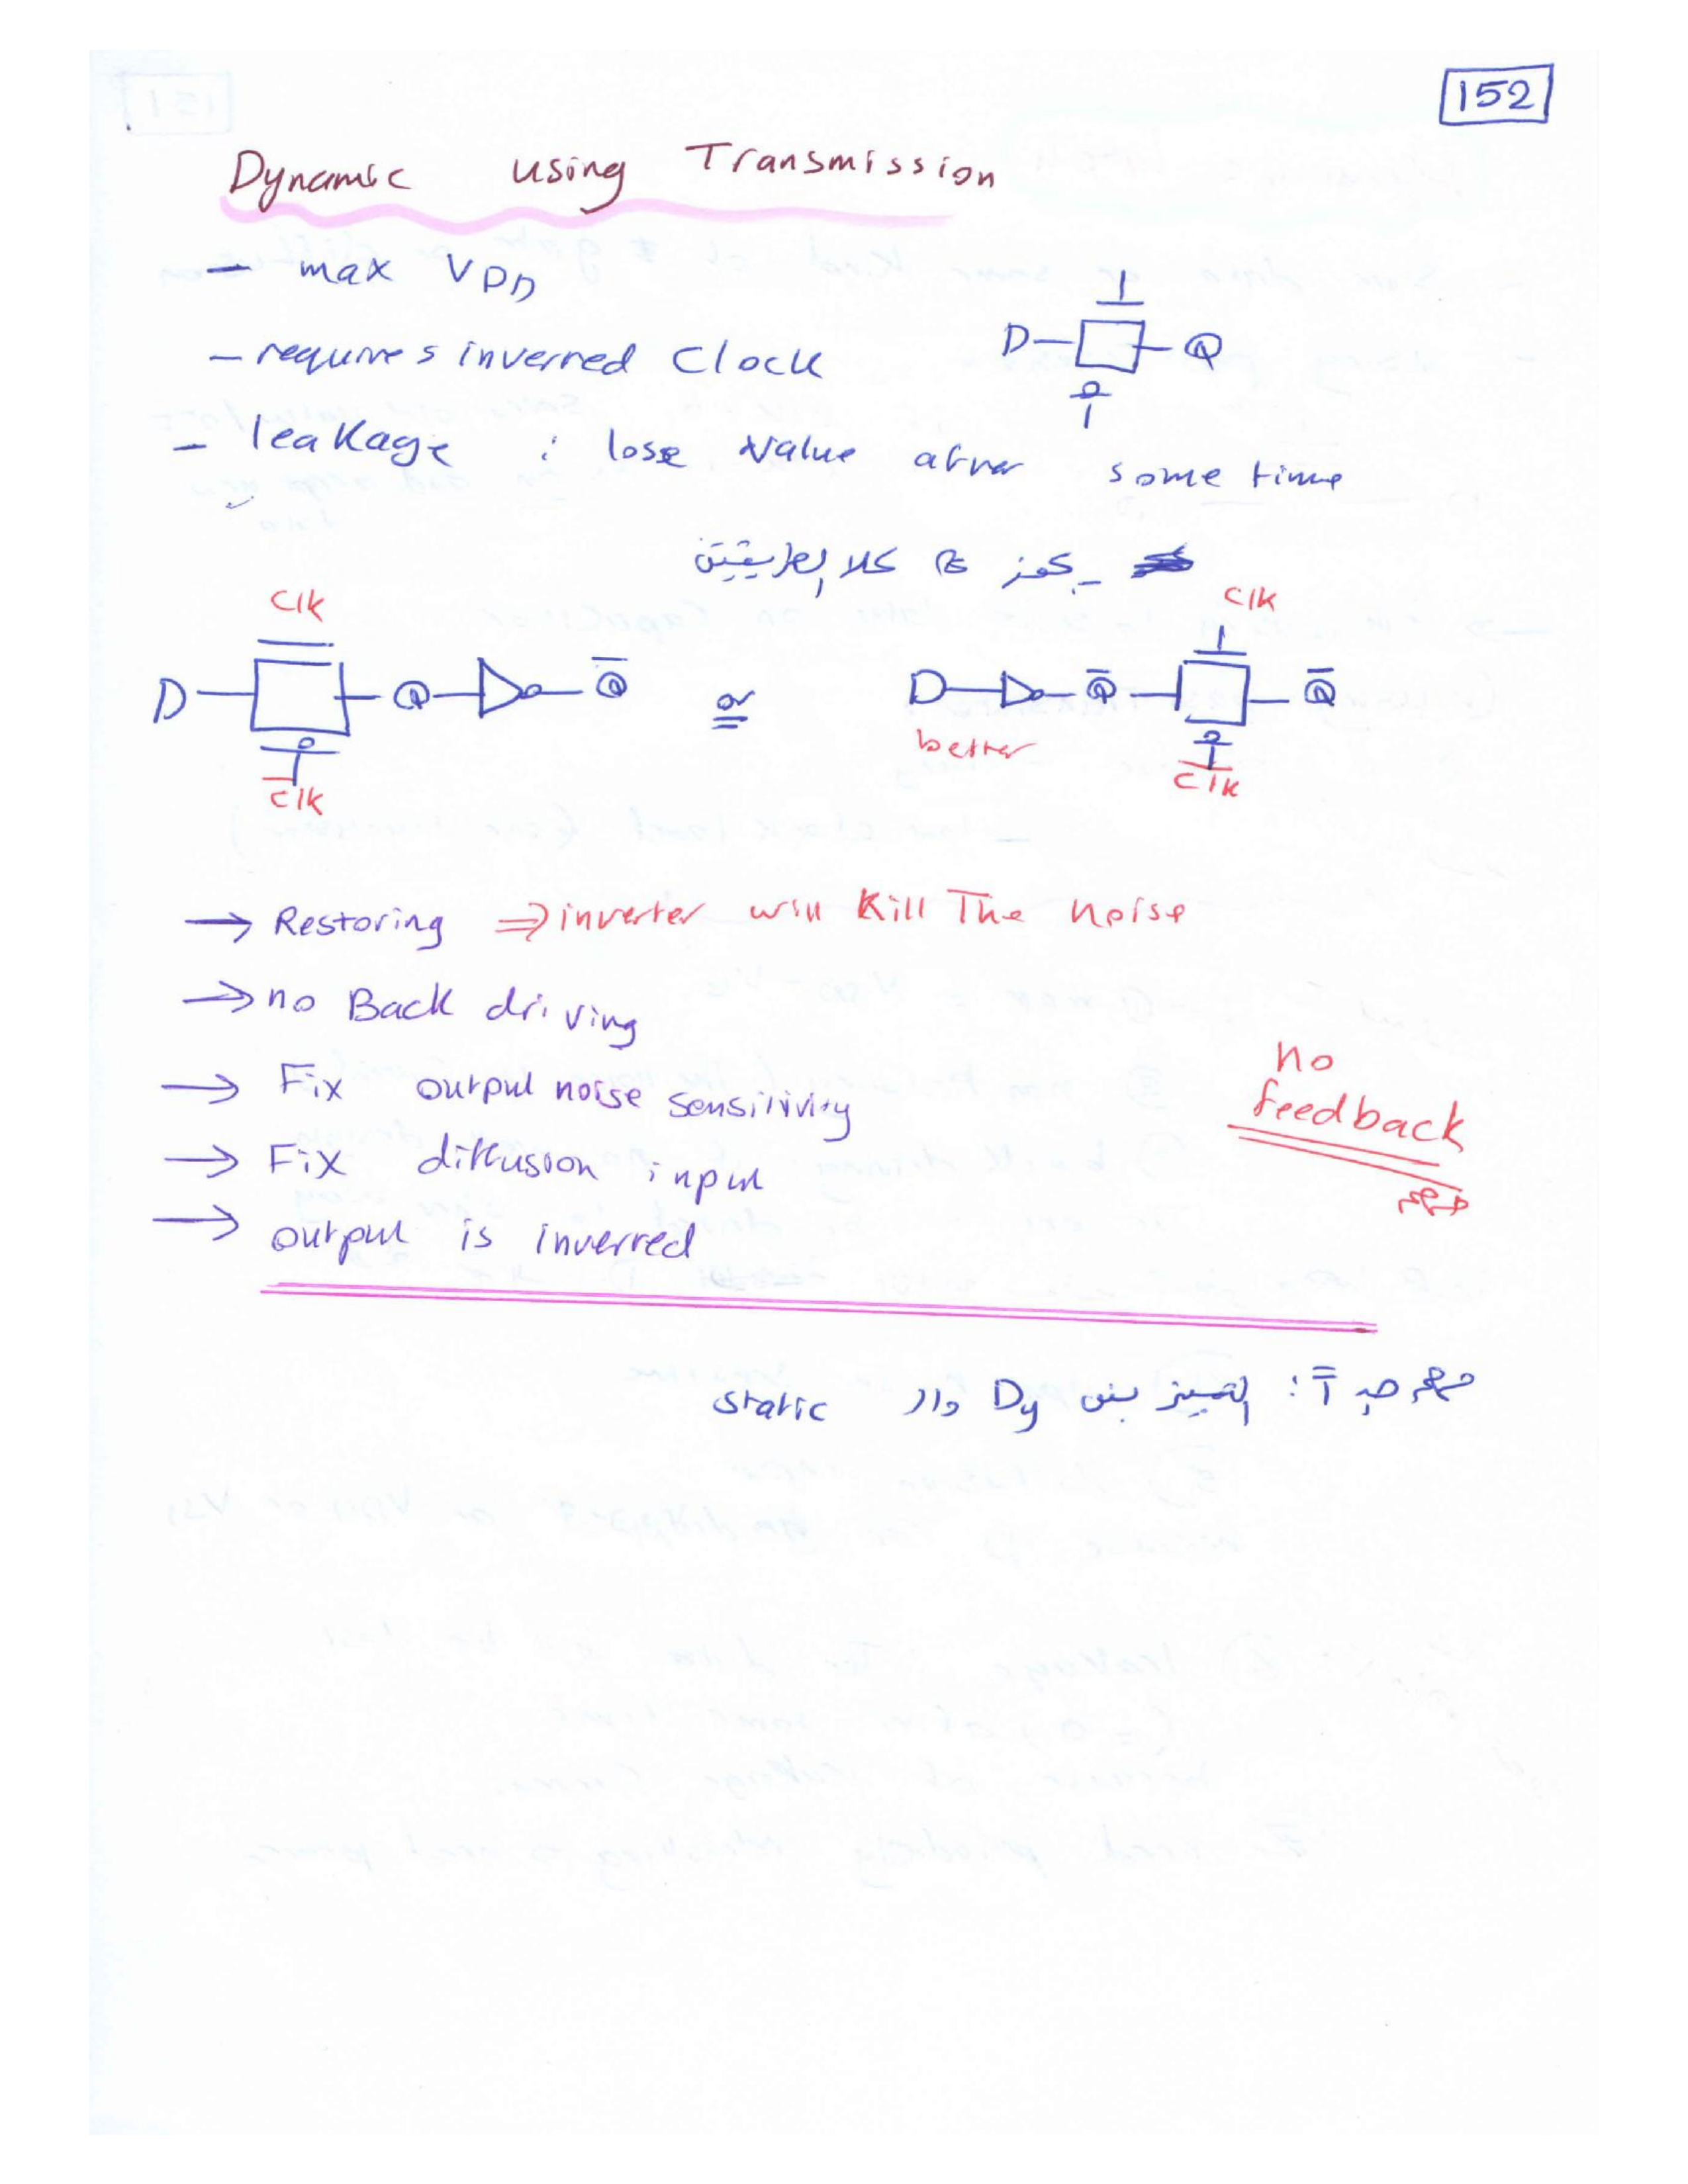 152
Dynamic using Transmission
- max VDD
- requires inverred Clock
D Q
- leakage : lose value after some time
يجوز كلا الطريقتين
Clk Clk
D Q Q̅ or D Q̅ Q̅
better
C̅l̅k̅ C̅l̅k̅
→ Restoring ⇒ inverter will Kill The noise
→ no Back driving
→ Fix output noise sensitivity
no feedback
→ Fix diffusion input
مهم
→ output is inverred
مهم جداً : التمييز بين Dy والـ static